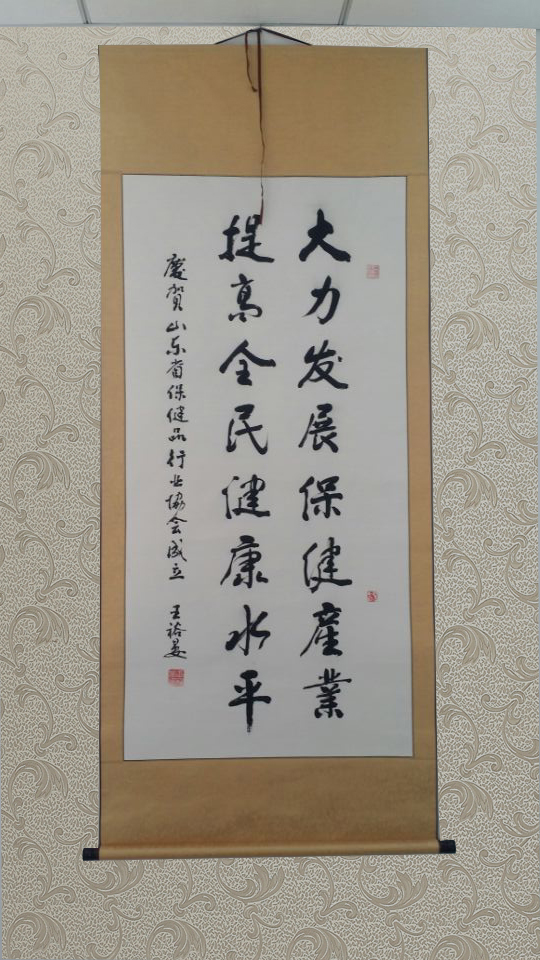 大力发展保健產業
提高全民健康水平
慶賀山东省保健品行业協会成立
王裕晏